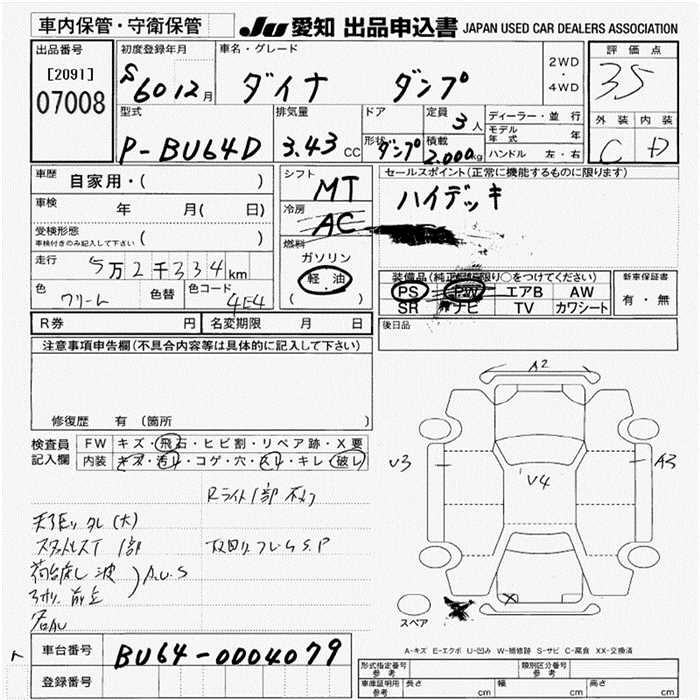 車内保管・守衛保管
JU 愛知 出品申込書 JAPAN USED CAR DEALERS ASSOCIATION
出品番号
[2091]
07008
初度登録年月
S 60 12月
車名・グレード
ダイナ ダンプ
2WD
・
4WD
評価点
35
型式
P-BU64D
排気量
3.43 CC
ドア
形状
ダンプ
定員
3人
積載
2,000kg
ディーラー・並行
モデル年式 年
ハンドル 左・右
外装 内装
C D
車歴 自家用・( )
車検 年 月( 日)
受検形態
車検付きのみ記入して下さい ( )
走行 5万2千334km
色 クリーム 色替 色コード 4E4
シフト
MT
冷房
AC
燃料
ガソリン
軽・油
( )
セールスポイント(正常に機能するものに限ります)
ハイデッキ
装備品(純正に限り○をつけてください)
PS PW エアB AW
SR ナビ TV カワシート
新車保証書
有・無
R券 円 名変期限 月 日
後日品
注意事項申告欄(不具合内容等は具体的に記入して下さい)
修復歴 有 (箇所 )
検査員記入欄
FW キズ・飛石・ヒビ割・リペア跡・X要
内装 キズ・汚レ・コゲ・穴・スレ・キレ・破レ
Rライト1部
(大)
1部
荷台 波
A.U.S
S.P
A2
U3
U4
A3
X
スペア
A-キズ E-エクボ U-凹み W-補修跡 S-サビ C-腐食 XX-交換済
車台番号 BU64-0004079
登録番号
形式指定番号
参考
類別区分番号
参考
車庫証明用
参考
長さ cm 幅 cm 高さ cm